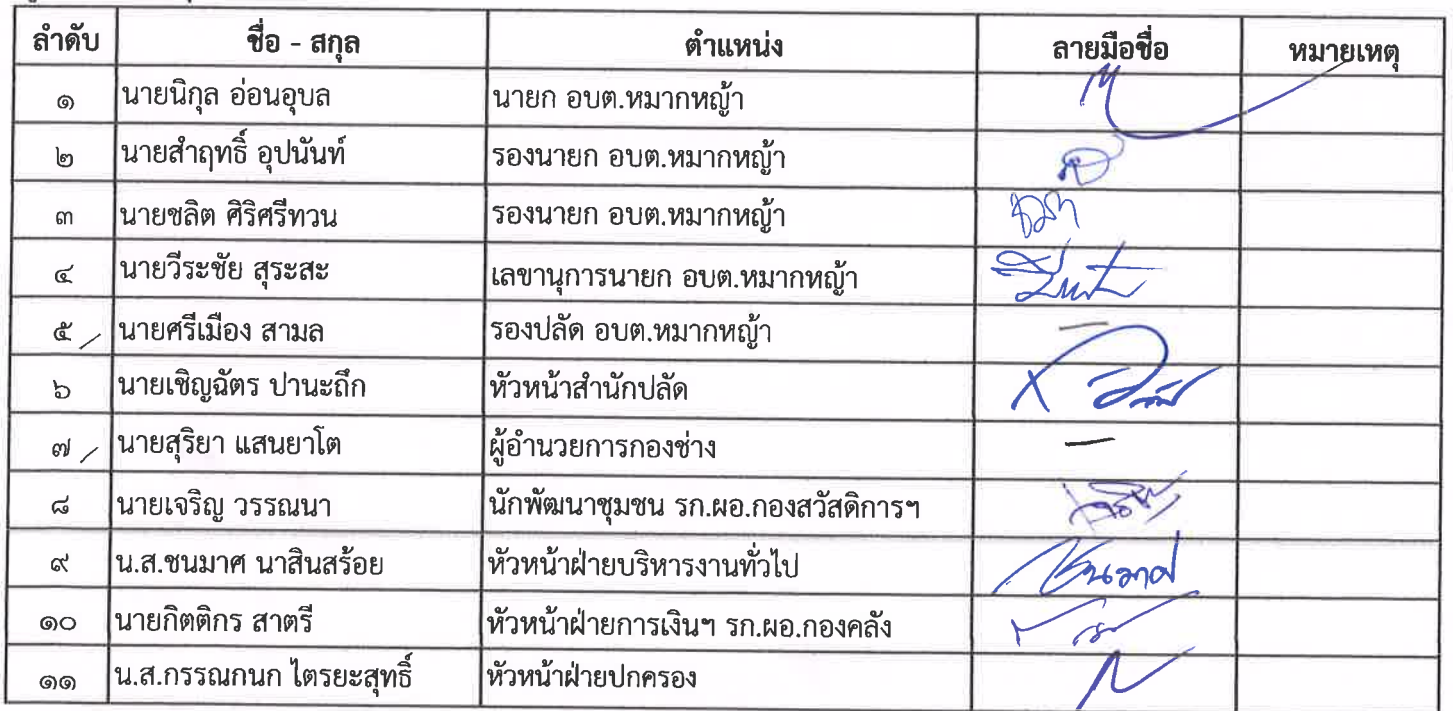 ลำดับ ชื่อ - สกุล ตำแหน่ง ลายมือชื่อ หมายเหตุ
๑ นายนิกุล อ่อนอุบล นายก อบต.หมากหญ้า
๒ นายสำฤทธิ์ อุปนันท์ รองนายก อบต.หมากหญ้า
๓ นายชลิต ศิริศรีทวน รองนายก อบต.หมากหญ้า
๔ นายวีระชัย สุระสะ เลขานุการนายก อบต.หมากหญ้า
๕ / นายศรีเมือง สามล รองปลัด อบต.หมากหญ้า —
๖ นายเชิญฉัตร ปานะถึก หัวหน้าสำนักปลัด
๗ / นายสุริยา แสนยาโต ผู้อำนวยการกองช่าง —
๘ นายเจริญ วรรณนา นักพัฒนาชุมชน รก.ผอ.กองสวัสดิการฯ
๙ น.ส.ชนมาศ นาสินสร้อย หัวหน้าฝ่ายบริหารงานทั่วไป
๑๐ นายกิตติกร สาตรี หัวหน้าฝ่ายการเงินฯ รก.ผอ.กองคลัง
๑๑ น.ส.กรรณกนก ไตรยะสุทธิ์ หัวหน้าฝ่ายปกครอง